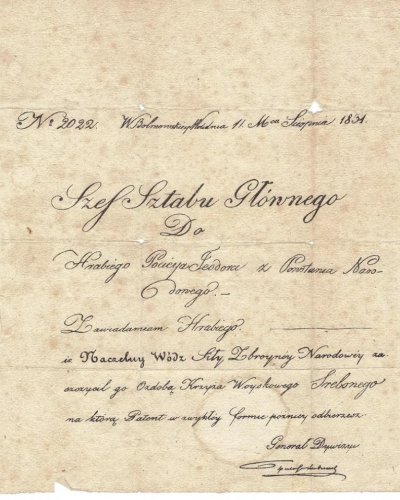 No 2022. W Bolimowskiey dnia 11. Mca Sierpnia 1831.
Szef Sztabu Głównego
Do
Hrabiego Pocieja Teodora z Powstania Naro-
dowego.—
Zawiadamiam Hrabiego.
że Naczelny Wódz Siły Zbroyney Narodowéy za-
szczycił go Ozdobą Krzyża Woyskowego Srebrnego
na którą Patent w zwykłey formie pozniey odbierzesz.
Generał Dywizyi